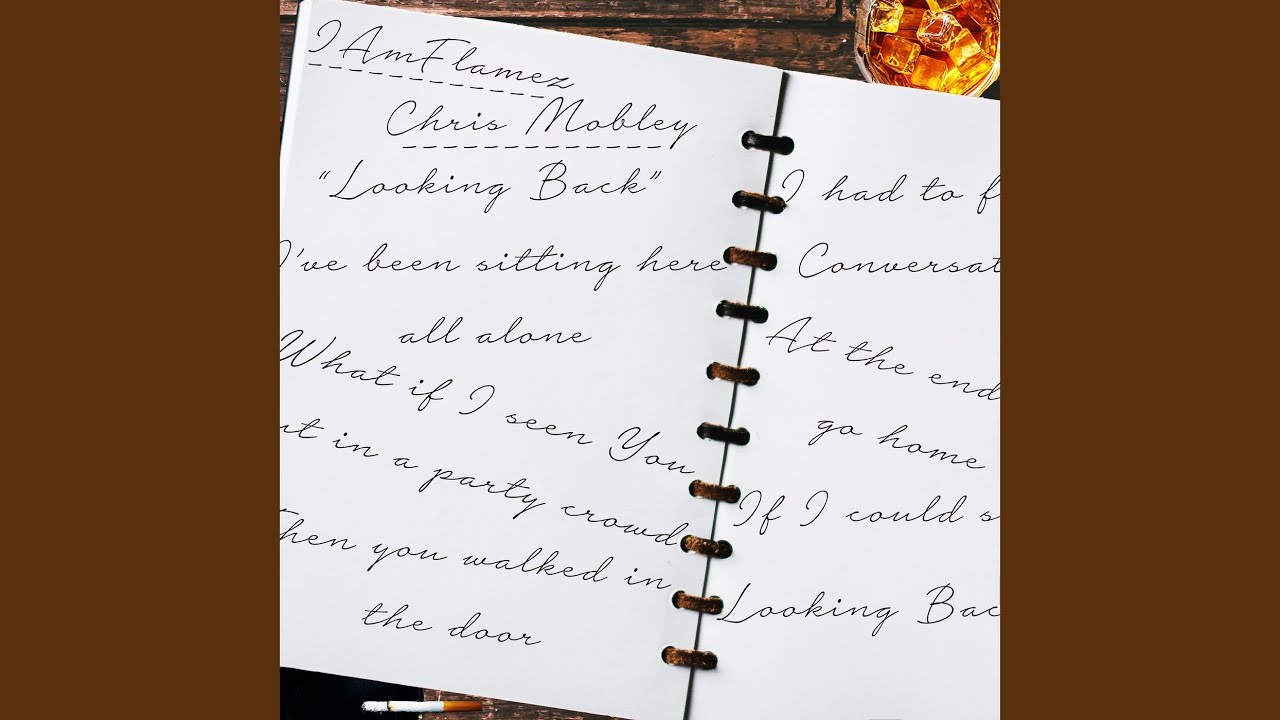 IAmFlamez
Chris Mobley
"Looking Back"
I've been sitting here
all alone
What if I seen You
ut in a party crowd
Then you walked in
the door
I had to f
Conversat
At the end
go home
If I could s
Looking Bac